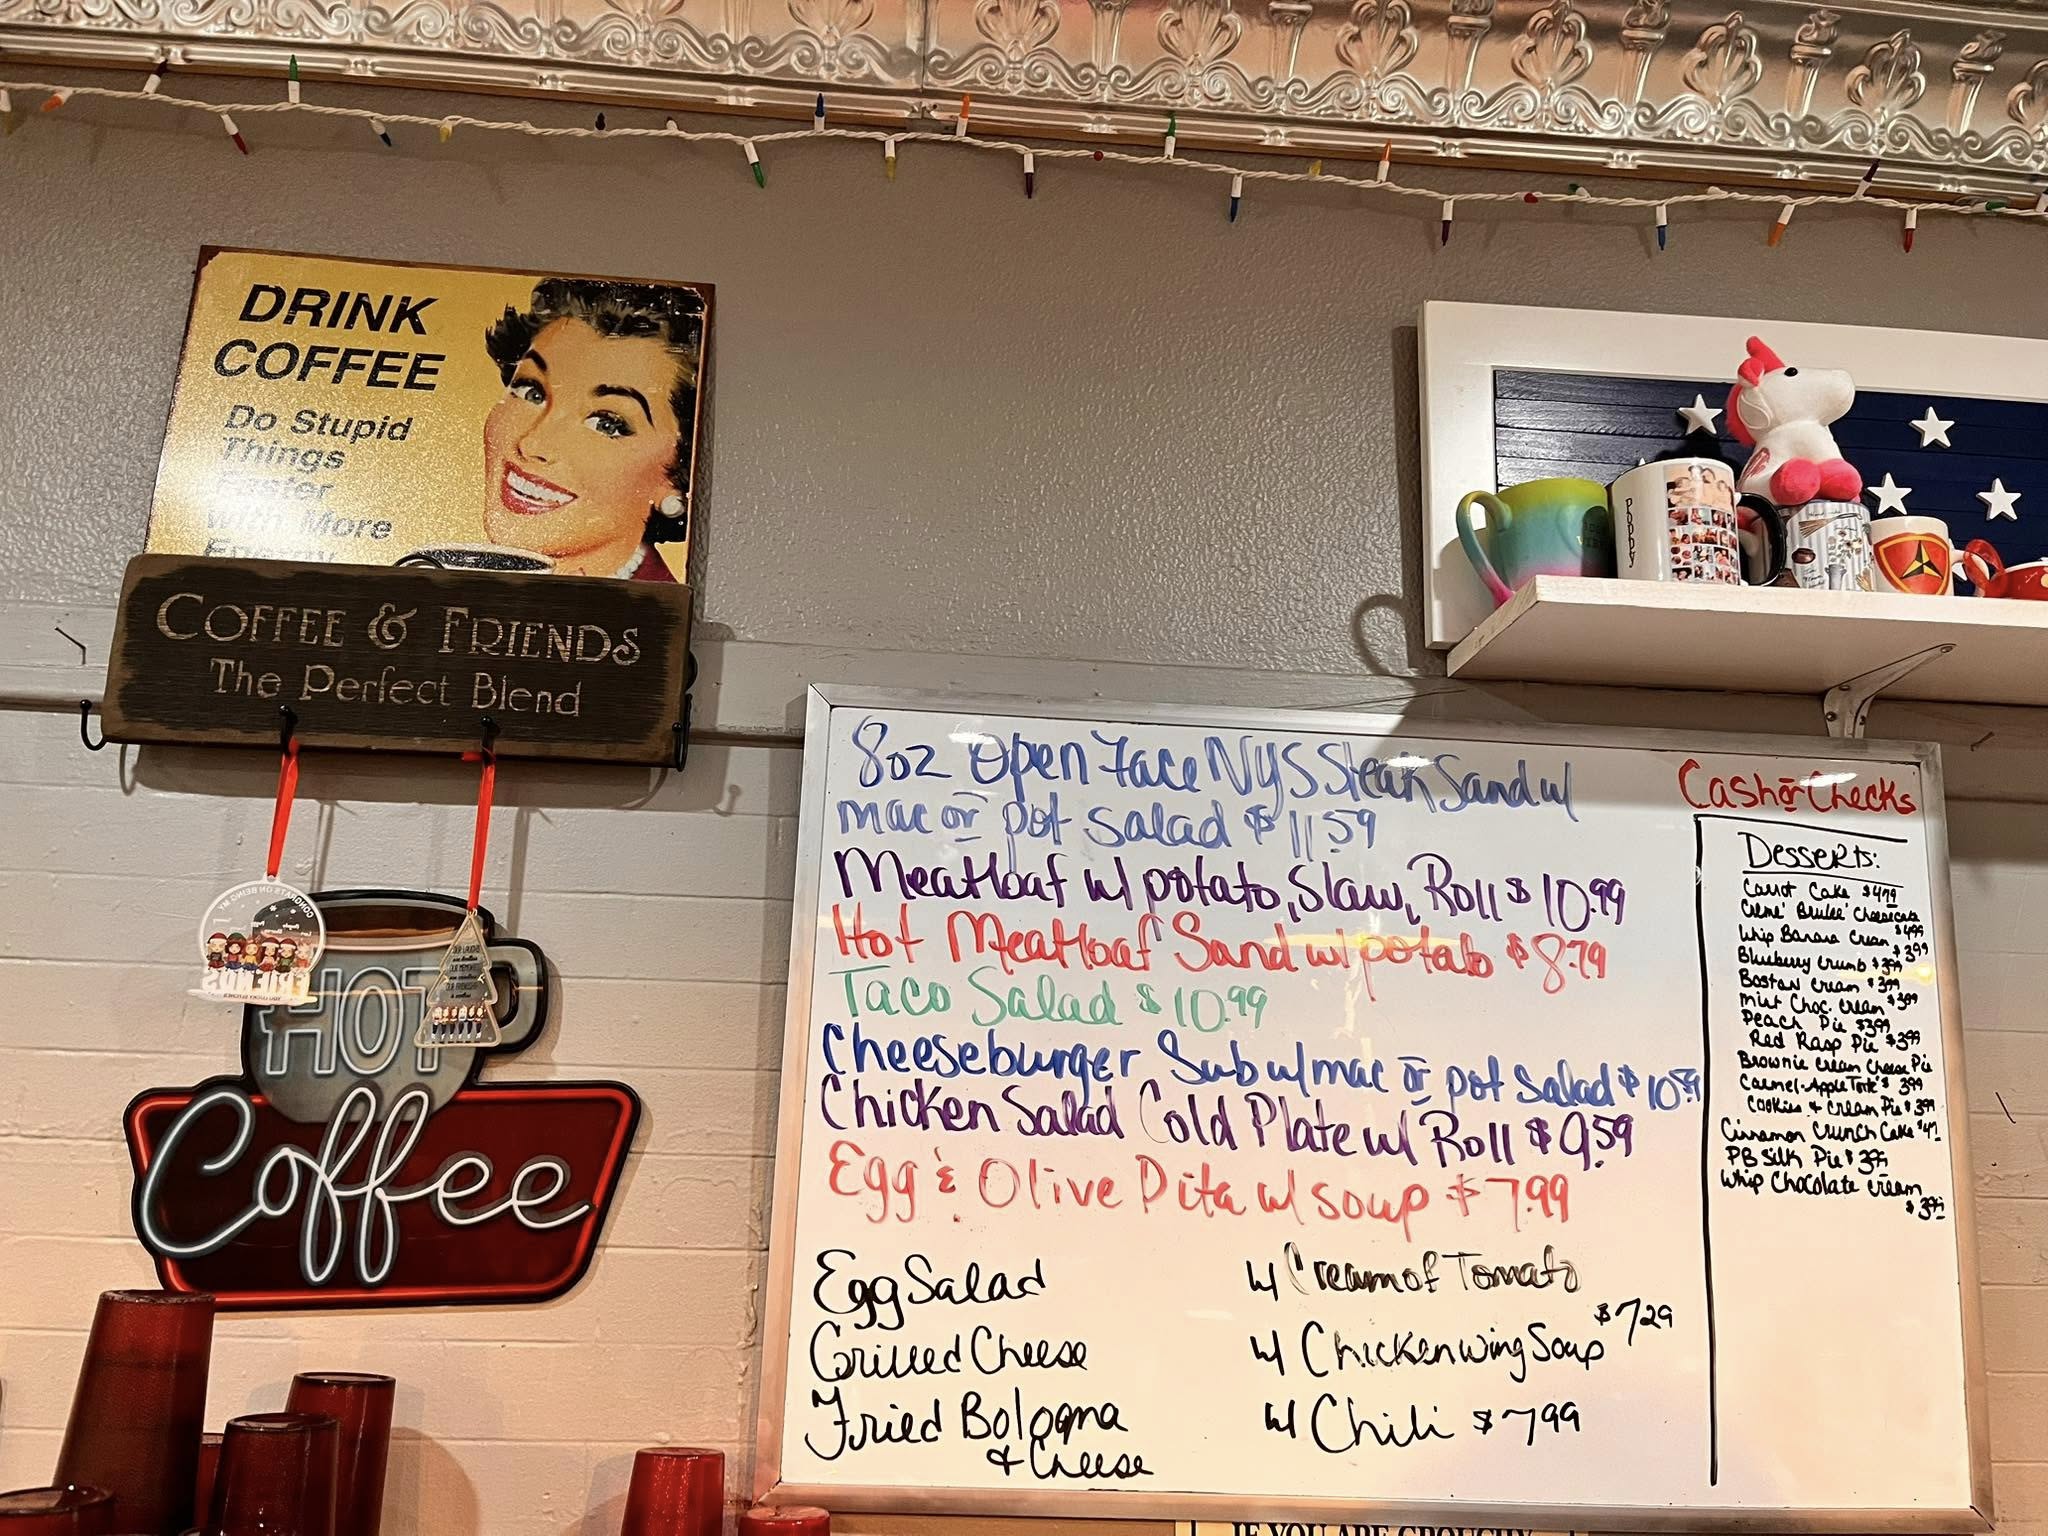 DRINK
COFFEE
Do Stupid
Things
Faster
With More
Energy
COFFEE & FRIENDS
The Perfect Blend
HOT
Coffee
CONGRATS ON BEING MY
FRIENDS
POPPY
8oz Open Face NYS Steak Sand w/
mac or pot salad $11.59
Meatloaf w/ potato, Slaw, Roll $10.99
Hot Meatloaf Sand w/ potato $8.79
Taco Salad $10.99
Cheeseburger Sub w/ mac or pot salad $10.59
Chicken Salad Cold Plate w/ Roll $9.59
Egg & Olive Pita w/ soup $7.99
Egg Salad w/ Cream of Tomato
$7.29
Grilled Cheese w/ Chicken Wing Soup
Fried Bologna w/ Chili $7.99
& Cheese
Cash or Checks
Desserts:
Carrot Cake $4.79
Creme' Brulee' Cheesecake
$4.99
Whip Banana Cream $3.99
Blueberry Crumb $3.99
Boston Cream $3.99
Mint Choc. Cream $3.99
Peach Pie $3.99
Red Rasp Pie $3.99
Brownie Cream Cheese Pie
Carmel-Apple Torte $3.99
Cookies & Cream Pie $3.99
Cinnamon Crunch Cake
PB Silk Pie $3.99
Whip Chocolate Cream
$3.99
IF YOU ARE GROUCHY